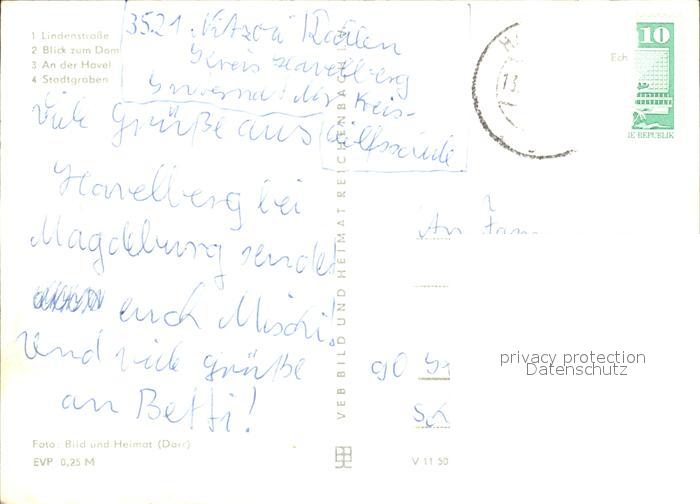 1 Lindenstraße
2 Blick zum Dom
3 An der Havel
4 Stadtgraben
3521 Nitzow
Kreis Havelberg
Internat der Kreis-
Viele Grüße aus
Havelberg bei
Magdeburg sendet
euch Mischi!
Und viele grüße
an Betti!
Foto: Bild und Heimat (Darr)
EVP 0,25 M
VEB BILD UND HEIMAT REICHENBACH
V 11 50
10
IE REPUBLIK
Ech
13
An Fam
90
privacy protection
Datenschutz